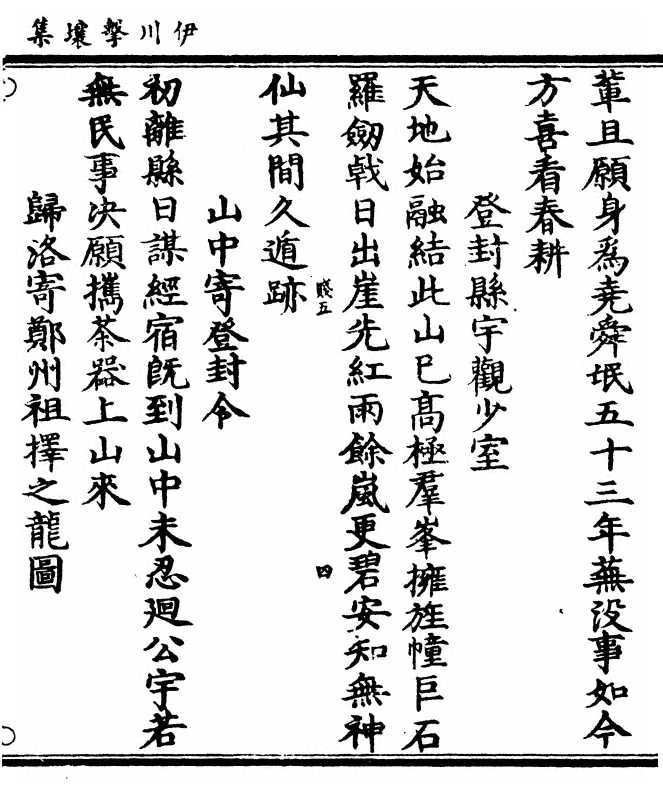 伊川擊壤集
葷且願身爲堯舜氓五十三年蕪没事如今
方喜看春耕
登封縣宇觀少室
天地始融結此山巳高極羣峯擁旌幢巨石
羅劒戟日出崖先紅雨餘嵐更碧安知無神
仙其間久遁跡
賤五
四
山中寄登封令
初離縣日謀經宿旣到山中未忍廻公宇若
無民事决願攜茶器上山來
歸洛寄鄭州祖擇之龍圖